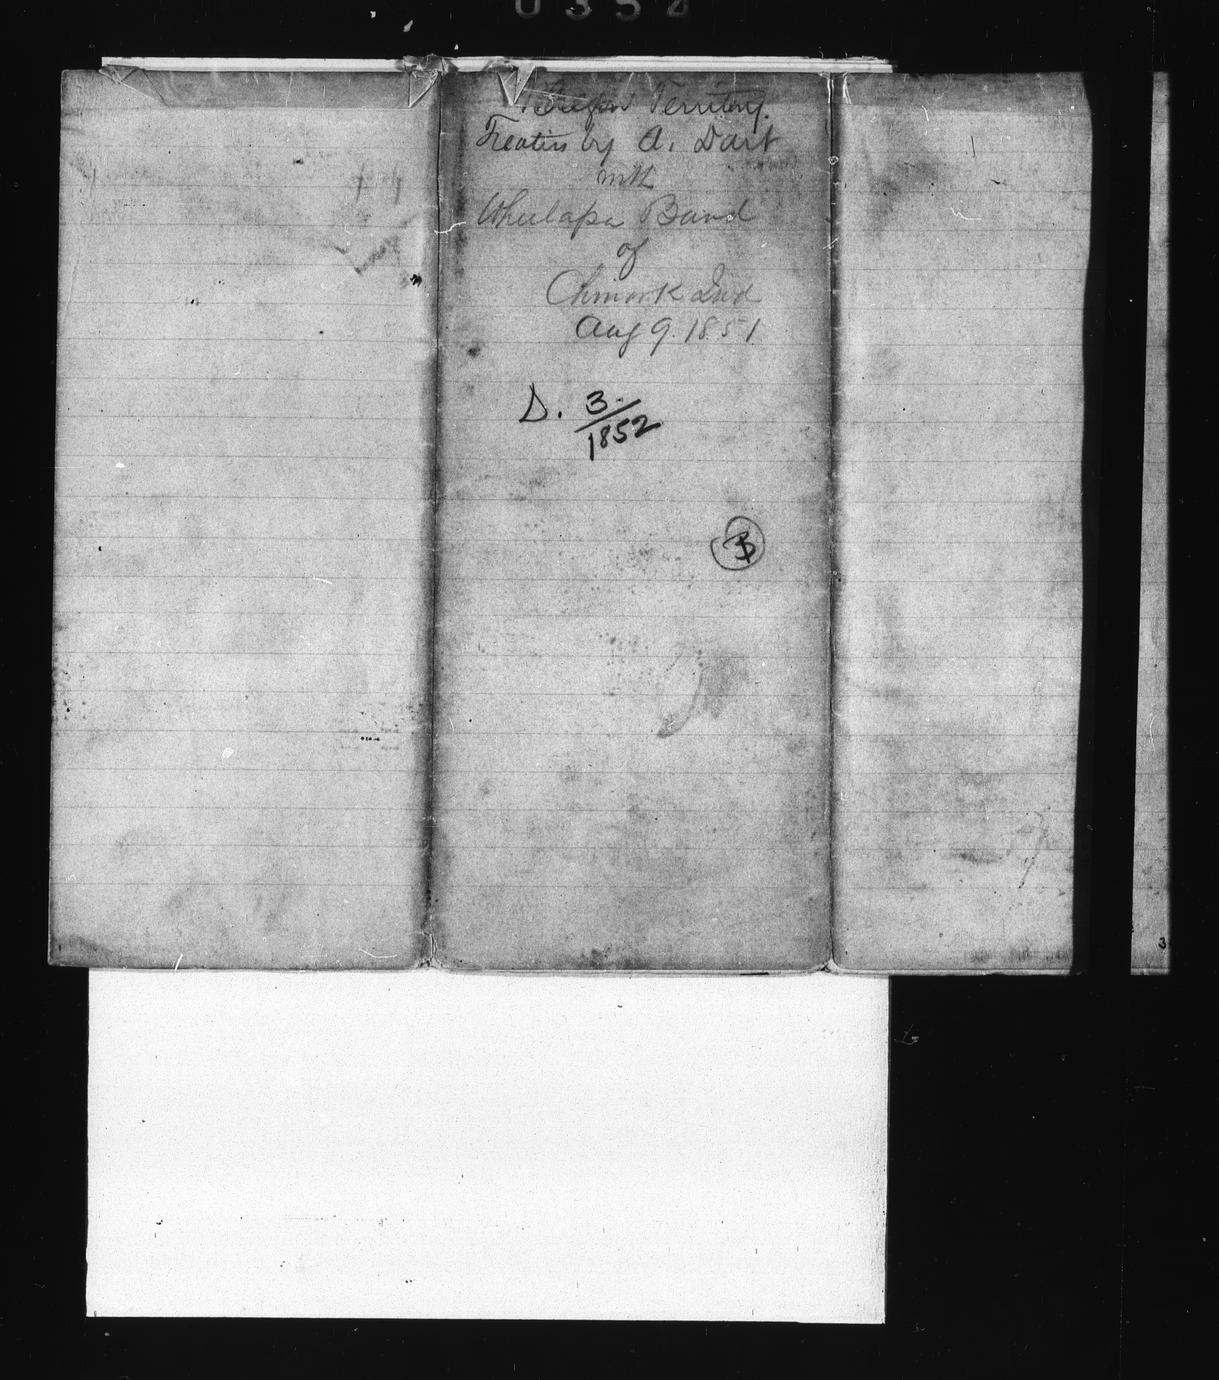 0352
Oregon Territory.
Treaties by A. Dart
with
Wheelapa Band
of
Chinook Ind
Aug 9. 1851
D. 3.
1852
B
3